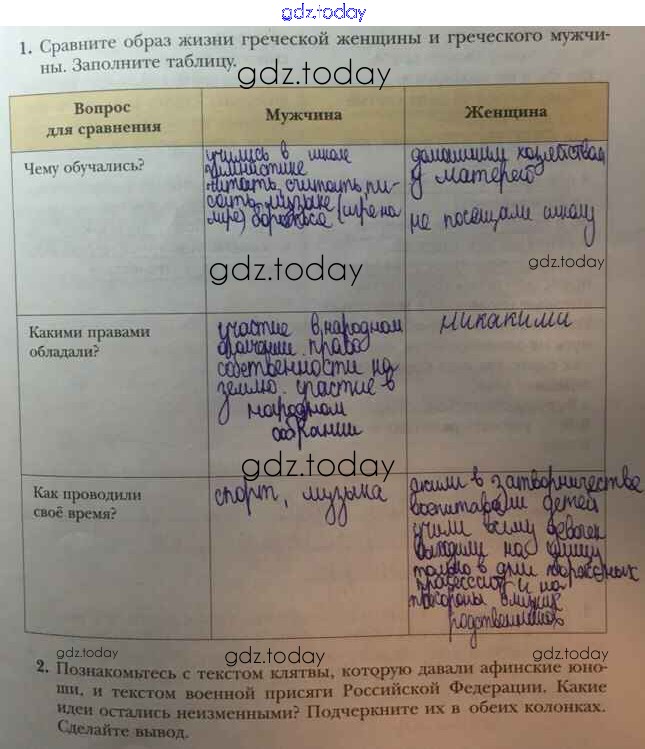 gdz.today
1. Сравните образ жизни греческой женщины и греческого мужчи-
ны. Заполните таблицу.
gdz.today
Вопрос
для сравнения
Мужчина
Женщина
Чему обучались?
учились в школе
гимнастике
читать, считать, пи-
сать, музыке (игре на
лире) борьбе
домашним хозяйствам
у матерей
не посещали школу
gdz.today
gdz.today
Какими правами
обладали?
участие в народном
право
собственности на
землю. участие в
народном
собрании
никакими
gdz.today
Как проводили
своё время?
спорт, музыка
жили в затворничестве
воспитывали детей
учили всему девочек
выходили на улицу
только в дни торжеств
процессий и на
похороны близких
родственников
gdz.today
gdz.today
gdz.today
2. Познакомьтесь с текстом клятвы, которую давали афинские юно-
ши, и текстом военной присяги Российской Федерации. Какие
идеи остались неизменными? Подчеркните их в обеих колонках.
Сделайте вывод.